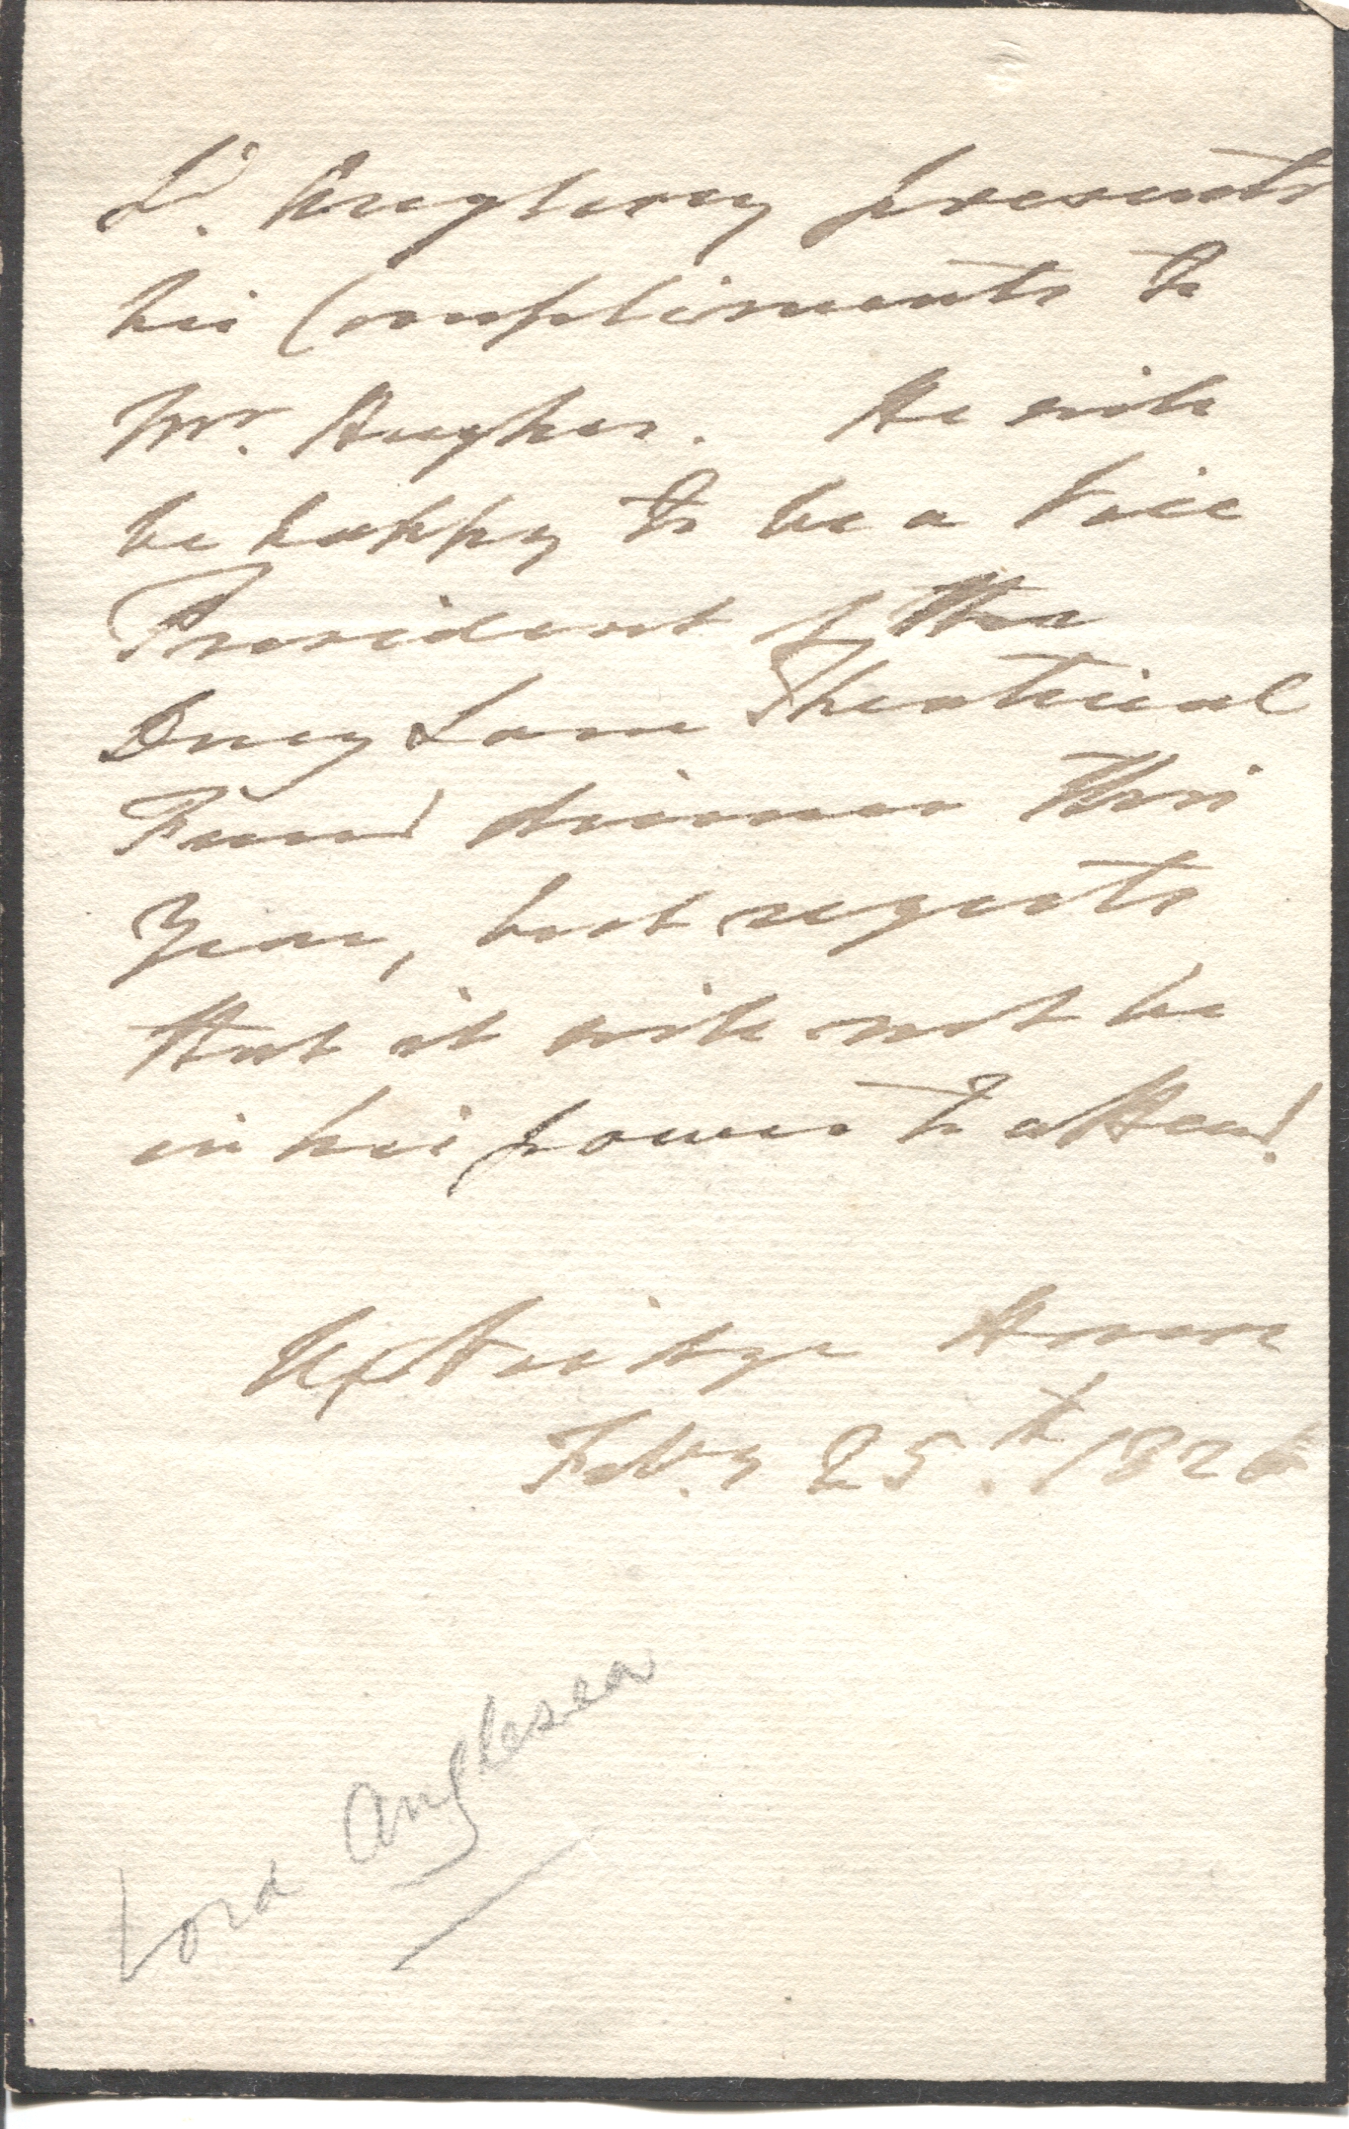 Ld. Anglesey presents
his Compliments to
Mr. Hughes. He will
be happy to be a Vice
President of the
Drury Lane Theatrical
Fund dinner this
Year, but regrets
that it will not be
in his power to attend.
Uxbridge House
Feb.y 25.th 1826
Lord Anglesea